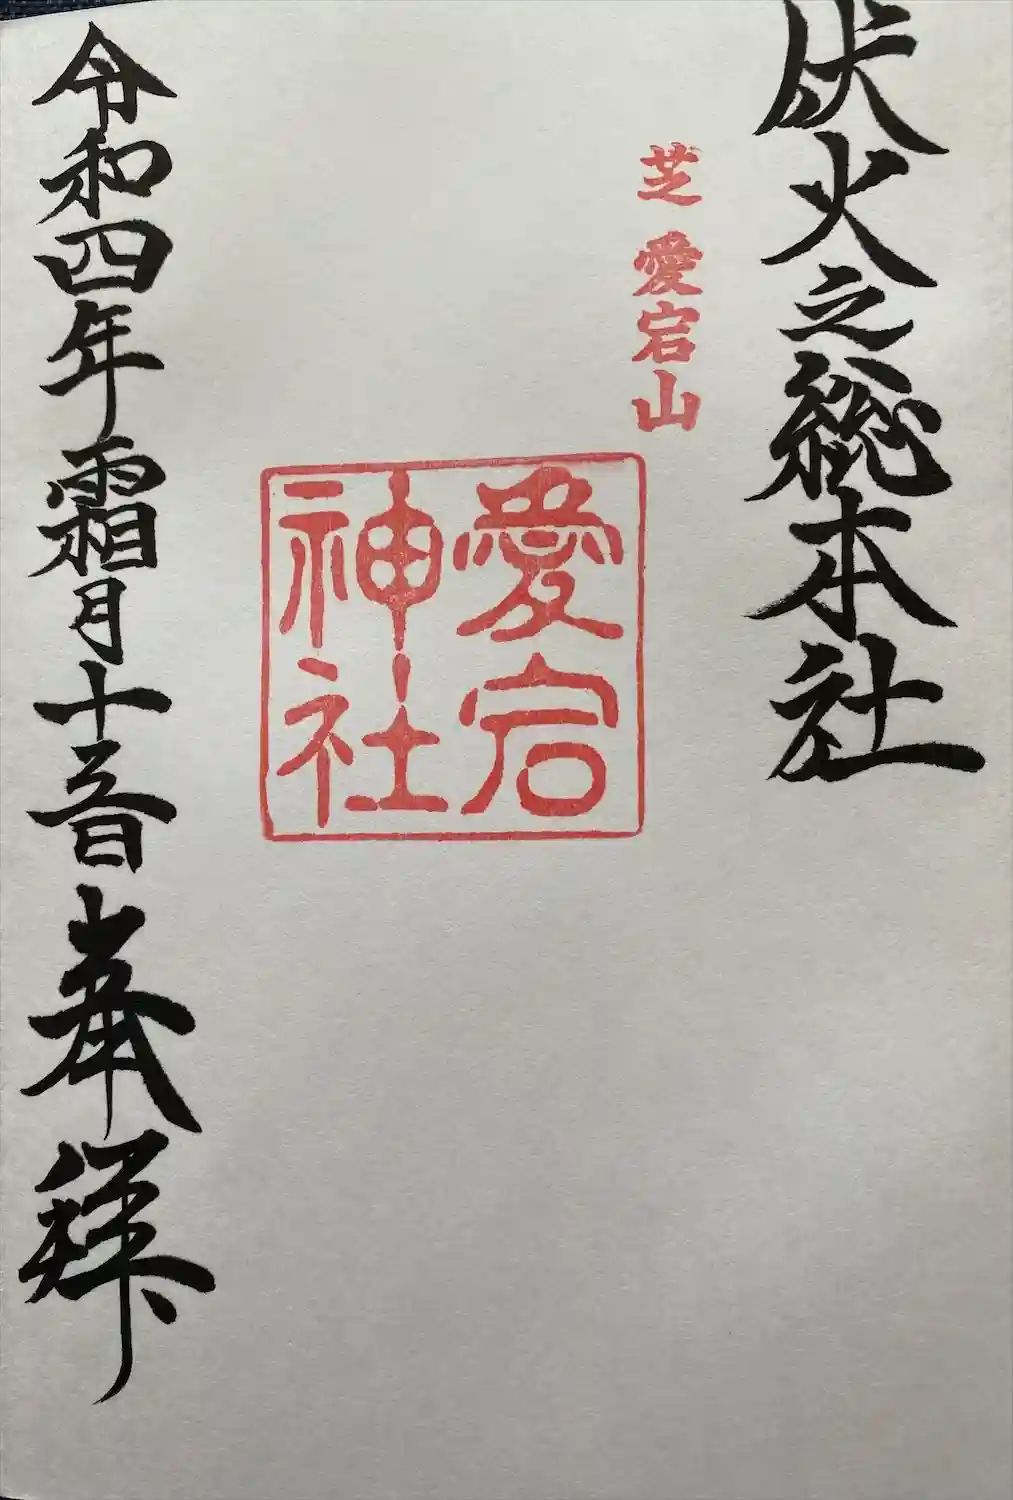 伏火之総本社
芝 愛宕山
愛宕
神社
令和四年霜月十五日 奉拝